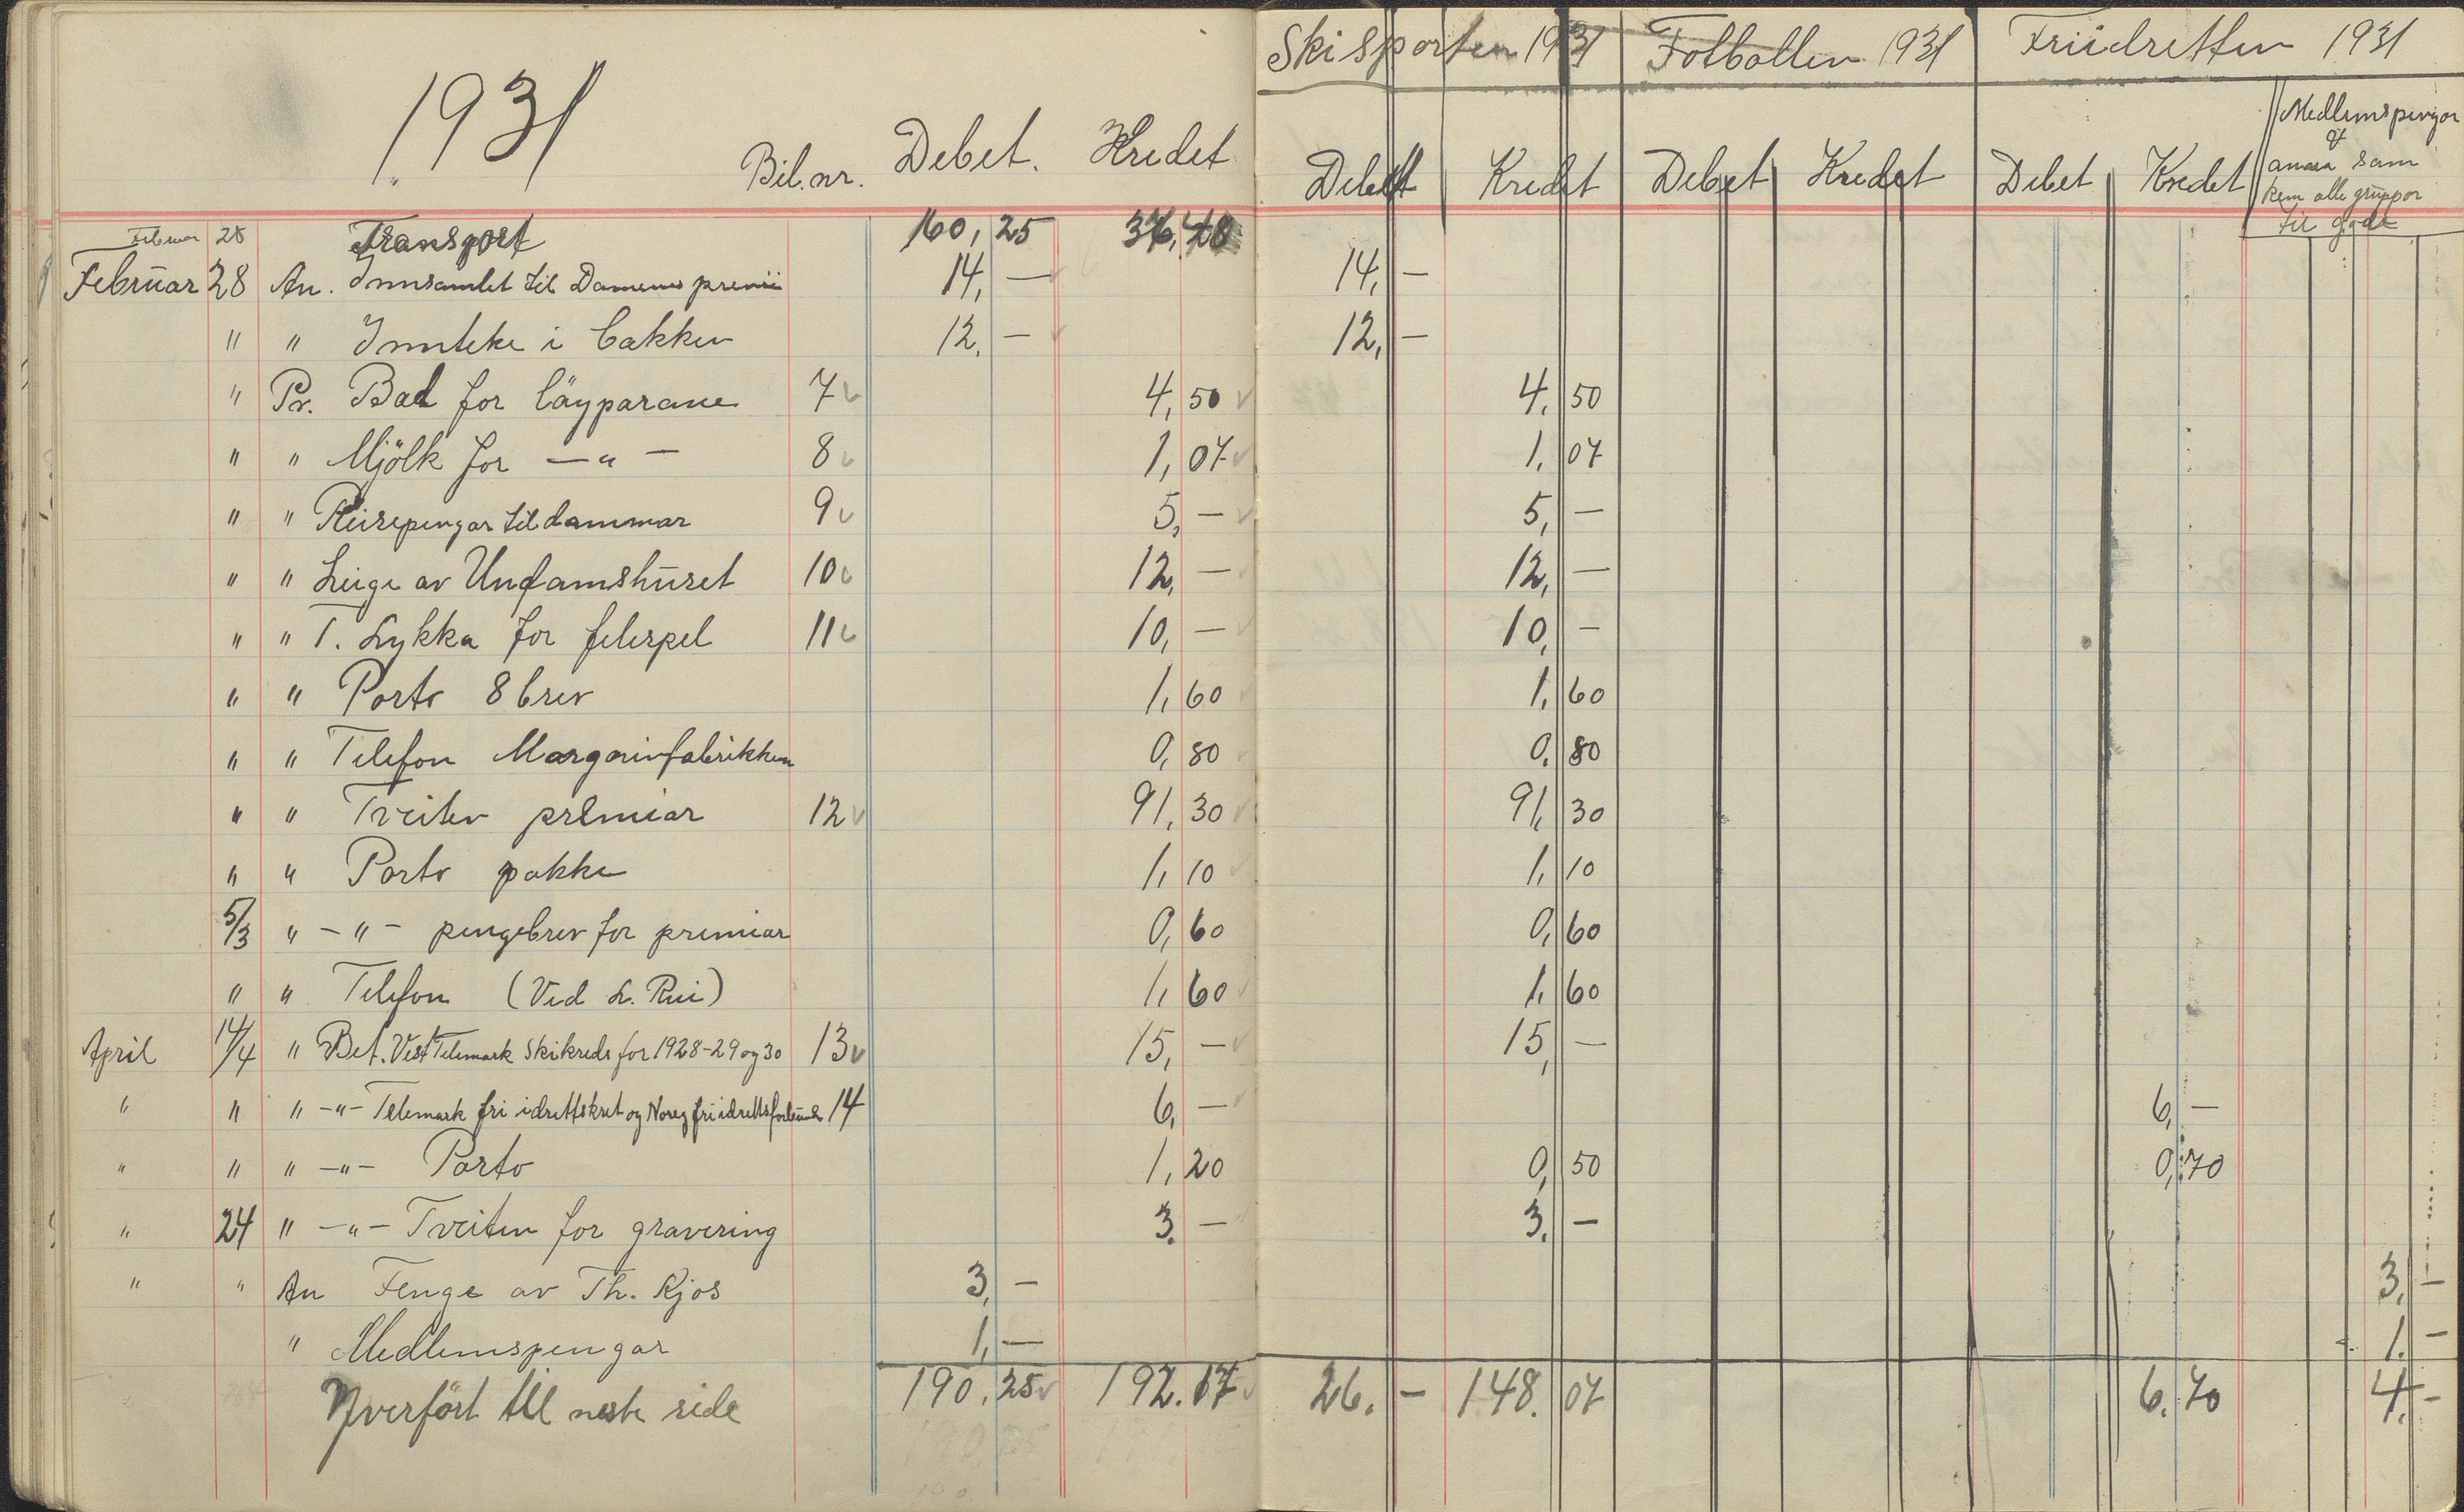 1931
Bil. nr. Debet. Kredet
Februar 28 Transport 160, 25
Februar 28 An. Innsamlet til Damenes premii 14, —
" " Innteke i bakken 12, —
" Pr. Bad for läyparane 7 4, 50
" " Mjölk for — " — 8 1, 07
" " Reisepengar til dammar 9 5, —
" " Leige av Ungdamshuset 10 12, —
" " T. Lykka for felespel 11 10, —
" " Porto 8 brev 1, 60
" " Telefon Margarinfabrikken 0, 80
" " Tveiten premiar 12 91, 30
" " Porto pakke 1, 10
5/3 " — " — pengebrev for premiar 0, 60
" " Telefon (Ved L. Rui) 1, 60
April 14/4 " Bet. Vest Telemark Skikreds for 1928-29 og 30 13 15, —
" " " — " — Telemark fri idrettskret og Noreg fri idrettsforbund 14 6, —
" " " — " — Porto 1, 20
" 24 " — " — Tveiten for gravering 3. —
" " An Fenge av Th. Kjos 3, —
" Medlemspengar 1, —
Yverfört til neste side 190, 25 192. 17
Skisporten 1931 Fotballen 1931 Friidretten 1931
Debet Kredet Debet Kredet Debet Kredet
Medlemspengar
og
anna sam
kem alle gruppor
til gode
14, —
12, —
4, 50
1, 07
5, —
12, —
10, —
1, 60
0, 80
91, 30
1, 10
0, 60
1, 60
15, —
6, —
0, 50 0, 70
3. —
3, —
1. —
26. — 148. 07 6. 70 4. —